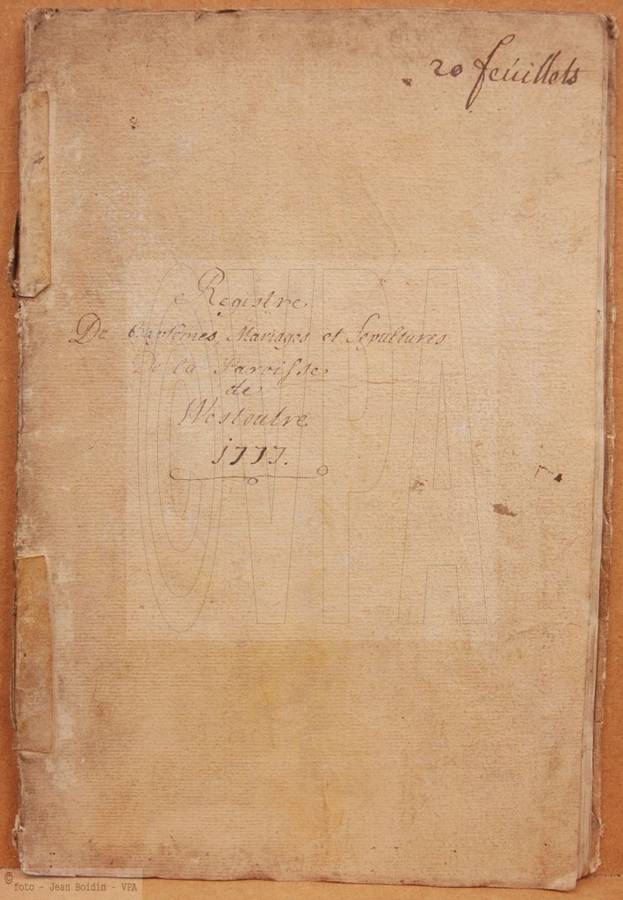 20 feuillets
Registre
De Baptêmes, Mariages et Sepultures
De la Paroisse
de
Westoutre
1777.
©VPA
© foto - Jean Boidin - VPA